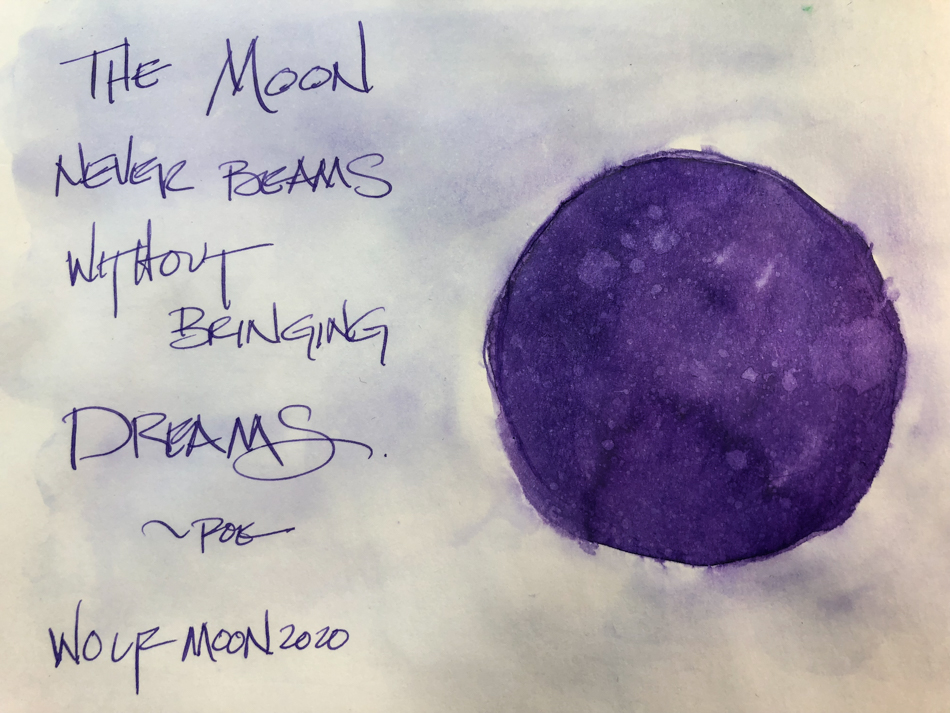 THE MOON
NEVER BEAMS
WITHOUT
BRINGING
DREAMS.
~POE
WOLF MOON 2020